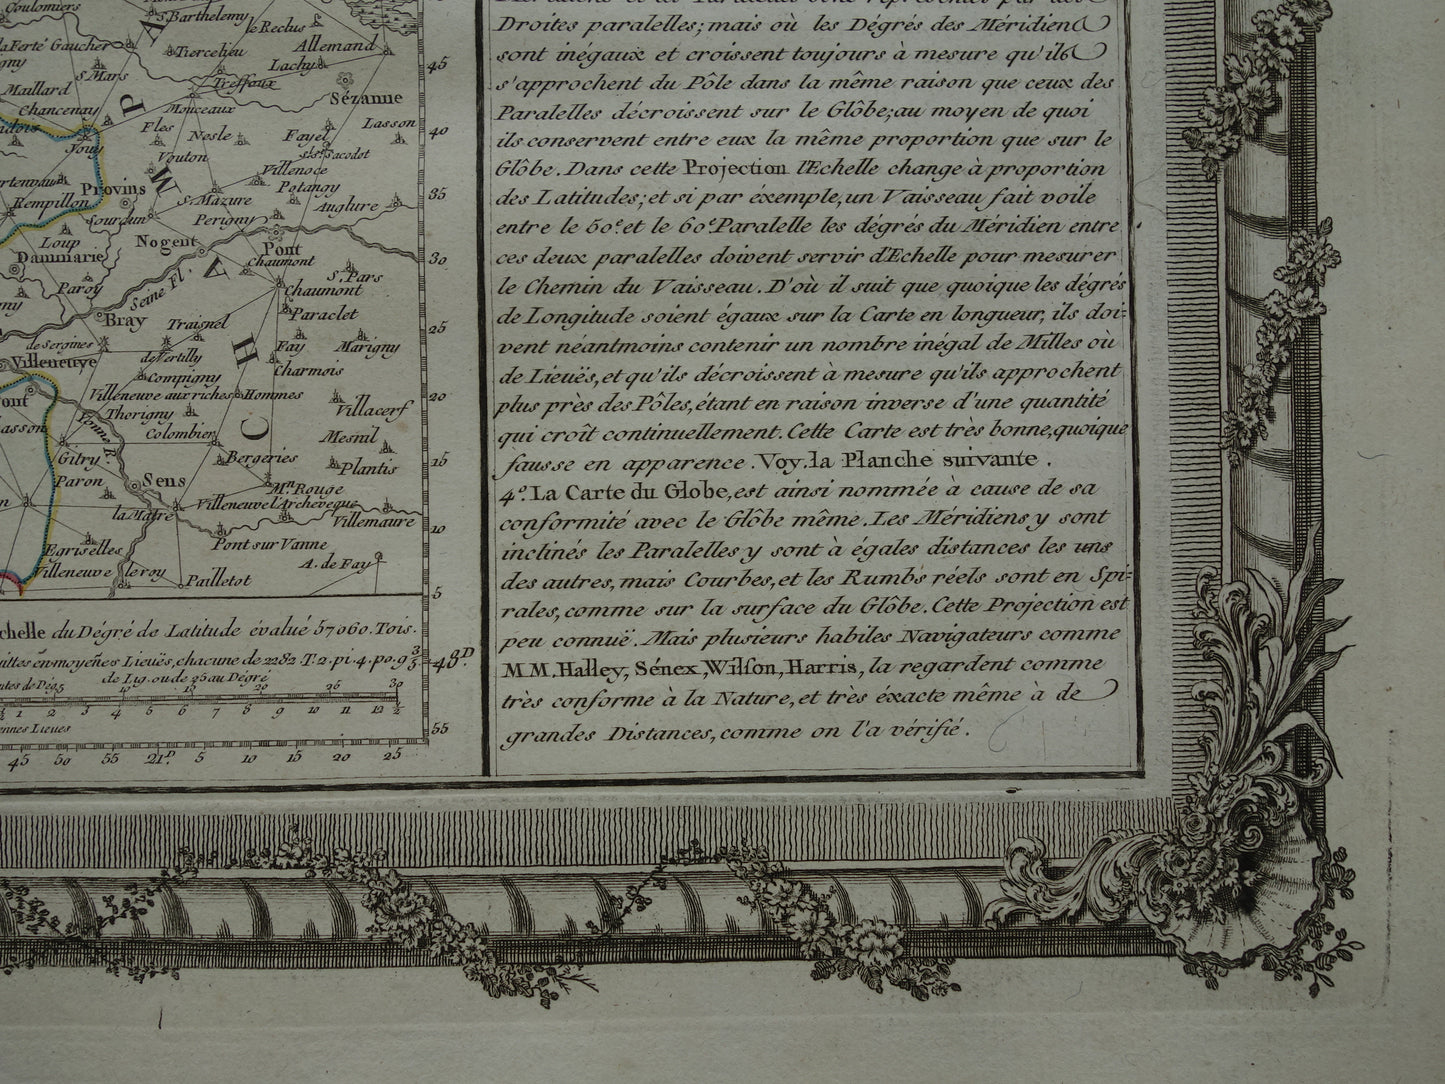 Coulomiers
S. Barthelemy
le Reclus
la Ferté Gaucher
Tiercelieu
Allemand
Lachy
S. Mars
Treffaux
Maillard
Mouceaux
Sézanne
Chancenay
Fles
Nesle
Fayel
Lasson
Jouy
Vouton
Villenoce
Potangy
Provins
Rempillon
Sourdun
S. Mazure
Perigny
Auglure
Loup
Nogent
Pont
Dammarie
Chaumont
S. Pars
Paroy
Seine Fl.
Chaumont
Bray
Paraclet
Traisnel
de Sergines
de Vertilly
Fay
Marigny
Villeneuve
Charmois
Compigny
Villeneuve aux riches Hommes
Thorigny
Villacerf
Yonne R.
Colombier
Mesnil
Gitry
Bergeries
Plantis
Paron
Sens
Mn Rouge
la Matre
Villeneuve l'Archeveque
Villemaure
Egriselles
Pont sur Vanne
Villeneuve le roy
Pailletot
A. de Fay
P A M A C H
45
40
35
30
25
20
15
10
5
48.D
55
Echelle du Dégré de Latitude évalué 57060. Tois.
de Lig. ou de 25 au Dégré
1 2 3 4 5 6 7 8 9 10 11 12 ½
45 50 55 21D. 5 10 15 20 25
Droites paralelles; mais où les Dégrés des Méridiens
sont inégaux et croissent toujours à mesure qu'ils
s'approchent du Pôle dans la même raison que ceux des
Paralelles décroissent sur le Glôbe; au moyen de quoi
ils conservent entre eux la même proportion que sur le
Glôbe. Dans cette Projection l'Echelle change à proportion
des Latitudes; et si par éxemple, un Vaisseau fait voile
entre le 50e. et le 60e. Paralelle les dégrés du Méridien entre
ces deux paralelles doivent servir d'Echelle pour mesurer
le Chemin du Vaisseau. D'où il suit que quoique les dégrés
de Longitude soient égaux sur la Carte en longueur, ils doi-
vent néantmoins contenir un nombre inégal de Milles où
de Lieuës, et qu'ils décroissent à mesure qu'ils approchent
plus près des Pôles, étant en raison inverse d'une quantité
qui croît continuellement. Cette Carte est très bonne, quoique
fausse en apparence. Voy. la Planche suivante.
4o. La Carte du Globe, est ainsi nommée à cause de sa
conformité avec le Glôbe même. Les Méridiens y sont
inclinés les Paralelles y sont à égales distances les uns
des autres, mais Courbes, et les Rumbs réels sont en Spi-
rales, comme sur la surface du Glôbe. Cette Projection est
peu connuë. Mais plusieurs habiles Navigateurs comme
M M. Halley, Sénex, Wilson, Harris, la regardent comme
très conforme à la Nature, et très éxacte même à de
grandes Distances, comme on l'a vérifié.